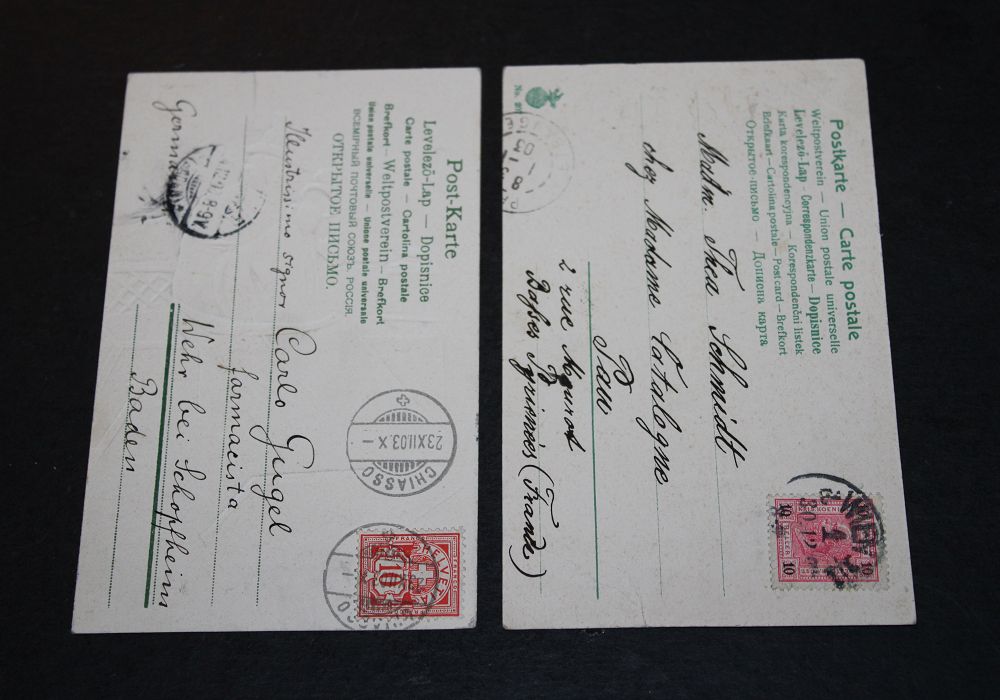 Post-Karte
Levelező-Lap — Dopisnice
Carte postale — Cartolina postale
Brefkort — Weltpostverein — Brefkort
Union postale universelle — Unione postale universale
ВСЕМІРНЫЙ ПОЧТОВЫЙ СОЮЗЪ. РОССІЯ
ОТКРЫТОЕ ПИСЬМО.
Illustrissimo signor
Carlo Gugel
farmacista
Wehr bei Schopfheim
Baden
Germania
CHIASSO
23.XII.03.X
HELVETIA
10
Postkarte — Carte postale
Weltpostverein — Union postale universelle
Levelező-Lap — Correspondenzkarte — Dopisnice
Karta korespondencyjna — Korespondenční listek
Briefkaart — Cartolina postale — Post card — Brefkort
Открытое-письмо — Дописна карта
Madm. Thea Schmidt
chez Madame Catalogne
Pau
2 rue
Basses Pyrénées (France)
WIEN
10 HELLER 10